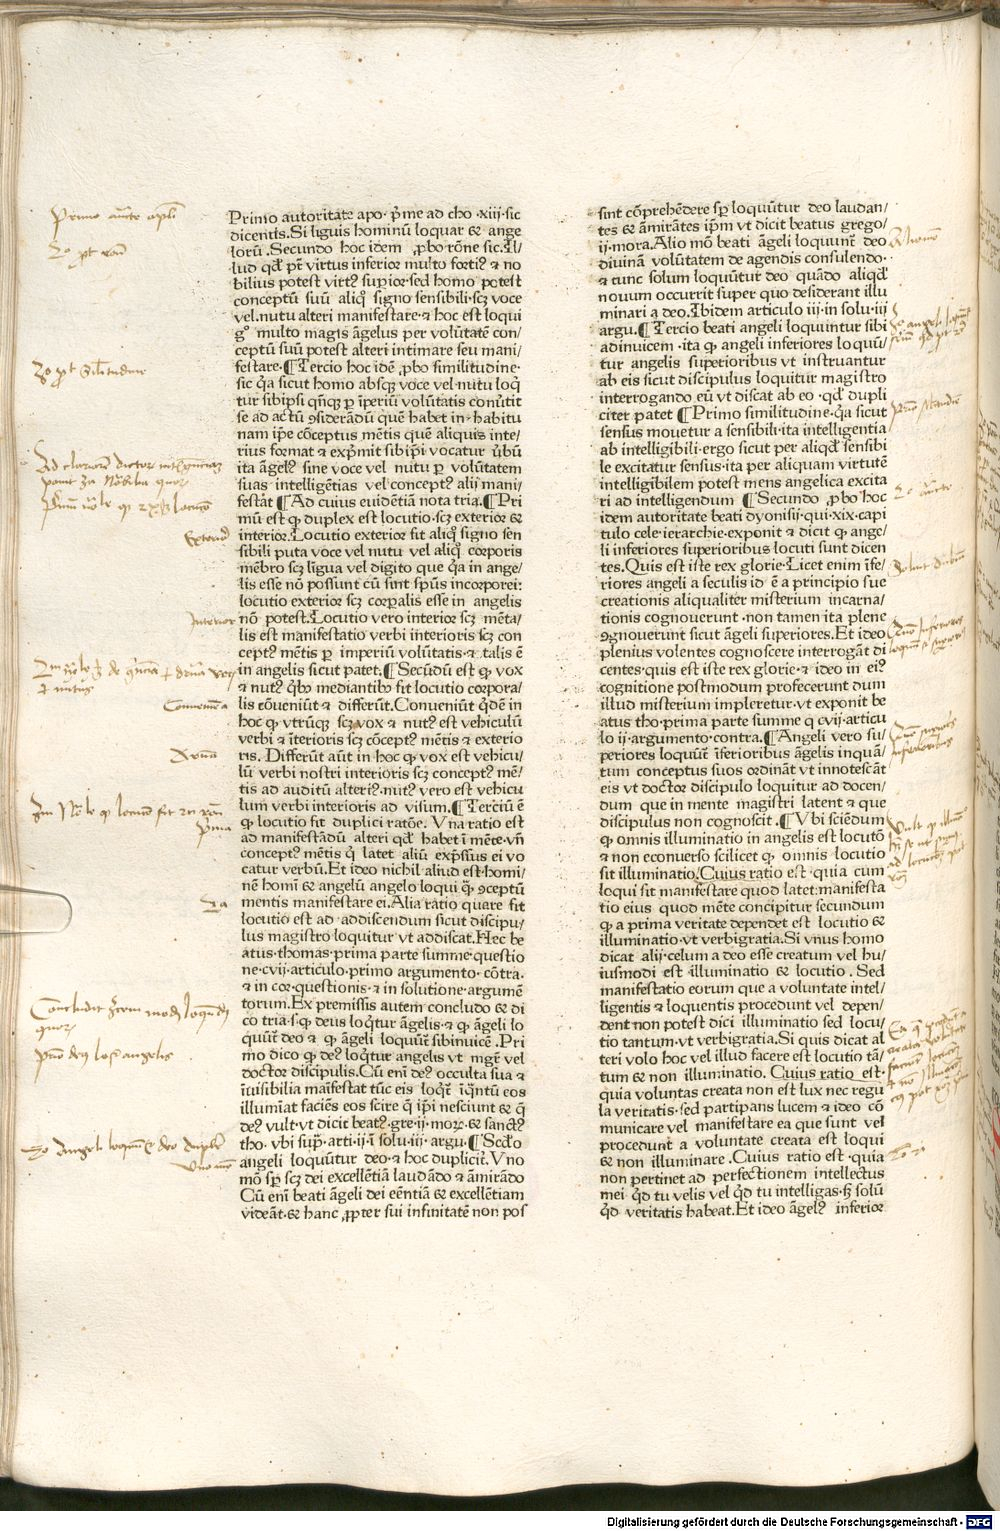 Primo autoritate apo· p̄me ad cho ·xiij·sic
dicentis.Si liguis hominū loquar & ange
lorū.Secundo hoc idem ꝓbo rōne sic.Il/
lud qd̄ pt̄ virtus inferior multo fortiꝰ & no
bilius potest virtꝰ supior·sed homo potest
conceptū suū aliqͦ signo sensibili·scꝫ voce
vel·nutu alteri manifestare·& hoc est loqui
gͦ multo magis āgelus per volūtatē con/
ceptū suū potest alteri intimare seu mani/
festare·¶Tercio hoc idē ꝓbo similitudine·
sic qͣa sicut homo absqꝫ voce vel·nutu loqͥ
tur sibipsi qn̄qꝫ ꝑ īperiū volūtatis conūtit
se ad actū ꝯsiderādū quē habet in·habitu
nam ip̄e cōceptus mētis quē aliquis inte/
rius format & exp̄mit sibip̄i vocatur ūbū
ita āgelꝰ sine voce vel nutu ꝑ volūtatem
suas intelligētias vel conceptꝰ alij mani/
festāt ¶Ad cuius euidētiā nota tria.¶Pri
mū est ꝙ duplex est locutio·scꝫ exterior &
interior.Locutio exterior fit aliqͦ signo sen
sibili puta voce vel nutu vel aliqͦ corporis
mēbro scꝫ līgua vel digito que qͣa in ange/
lis esse nō possunt cū sint spūs incorporei:
locutio exterior scꝫ corꝑalis esse in angelis
nō potest.Locutio vero interior scꝫ mēta/
lis est manifestatio verbi interioris scꝫ con
ceptꝰ mētis ꝑ imperiū volūtatis·& talis ē
in angelis sicut patet.¶Secūdū est ꝙ vox
& nutꝰ qͥbꝰ mediantibꝰ fit locutio corpora/
lis cōueniūt & differūt.Conueniūt qͥdē in
hoc ꝙ vtrūqꝫ scꝫ vox & nutꝰ est vehiculū
verbi & īterioris scꝫ cōceptꝰ mētis & exterio
ris. Differūt aūt in hoc ꝙ vox est vehicu/
lū verbi nostri interioris scꝫ conceptꝰ mē/
tis ad auditū alteriꝰ·nutꝰ vero est vehicu
lum verbi interioris ad visum.¶Terciū ē
ꝙ locutio fit duplici ratōe. Vna ratio est
ad manifestādū alteri qd̄ habet ī mēte·vn̄
conceptꝰ mētis qͥ latet aliū exp̄ssus ei vo
catur verbū.Et ideo nichil aliud est·homi/
nē homī & angelū angelo loqui qͣ ꝯceptū
mentis manifestare ei.Alia ratio quare fit
locutio est ad addiscendum sicut discipu/
lus magistro loquitur vt addiscat.Hec be
atus·thomas·prima parte summe questio
ne·cvij·articulo·primo argumento·cōtra·
& in cor·questionis·& in solutione·argumē
torum.Ex premissis autem concludo & di
co tria·s·ꝙ deus loqͥtur āgelis·& ꝙ āgeli lo
quūt̄ deo & ꝙ āgeli loquūt̄ sibinuicē.Pri
mo dico ꝙ deꝰ loqͥtur angelis vt mgr̄ vel
doctor discipulis.Cū enī deꝰ occulta sua &
īuisibilia maīfestat tūc eis loqͥt̄ īqͣntū eos
illumīat faciēs eos scire qͥ ip̄i nesciunt & qͥ
deꝰ vult·vt dicit beatꝰ·gre·ij·morꝝ·& sanctꝰ
tho·vbi supͣ·arti·ij·ī solu·iij·argu·¶Scd̄o
angeli loquūtur deo·& hoc duplicit̄.Vno
mō sp̄ scꝫ dei excellētiā laudādo & āmirādo
Cū enī beati āgeli dei eēntiā & excellētiam
videāt·& hanc ꝓpter sui infinitatē non pos
sint cōprehēdere sp̄ loquūtur deo laudan/
tes & āmirātes ip̄m vt dicit beatus grego/
ij·mora.Alio mō beati āgeli loquūnt̄ deo
diuinā volūtatem de agendis consulendo·
& tunc solum loquūtur deo quādo aliqd̄
nouum occurrit super quo desiderant illu
minari a deo.Ibidem articulo iij·in solu·iij
argu.¶Tercio beati angeli loquintur sibi
adinuicem·ita ꝙ angeli inferiores loquū/
tur angelis superioribus vt instruantur
ab eis sicut discipulus loquitur magistro
interrogando eū vt discat ab eo·qd̄ dupli
citer patet ¶Primo similitudine·qͣa sicut
sensus mouetur a sensibili·ita intelligentia
ab intelligibili·ergo sicut per aliqd̄ sensibi
le excitatur sensus·ita per aliquam virtutē
intelligibilem potest mens angelica excita
ri ad intelligendum ¶Secundo ꝓbo hoc
idem autoritate beati dyonisij·qui·xix·capi
tulo cele·ierarchie·exponit & dicit ꝙ ange/
li inferiores superioribus locuti sunt dicen
tes.Quis est iste rex glorie·Licet enim īfe/
riores angeli a seculis id ē a principio sue
creationis aliqualiter misterium incarna/
tionis cognouerunt·non tamen ita plene
ꝯgnouerunt sicut āgeli superiores.Et ideo
plenius volentes cognoscere interrogāt di
centes·quis est iste rex glorie·& ideo in eiꝰ
cognitione postmodum profecerunt dum
illud misterium impleretur·vt exponit be
atus tho·prima parte summe q cvij·articu
lo ij·argumento·contra.¶Angeli vero su/
periores loquūt̄ īferioribus āgelis inquā/
tum conceptus suos ordināt vt innotescāt
eis vt doctor discipulo loquitur ad docen/
dum que in mente magistri latent & que
discipulus non cognoscit.¶Vbi sciēdum
ꝙ omnis illuminatio in angelis est locutō
& non econuerso scilicet ꝙ omnis locutio
sit illuminatio.Cuius ratio est·quia cum
loqui sit manifestare quod latet·manifesta
tio eius quod mēte concipitur secundum
ꝙ a prima veritate dependet est locutio &
illuminatio·vt verbigratia.Si vnus homo
dicat alij·celum a deo esse creatum vel hu/
iusmodi est illuminatio & locutio. Sed
manifestatio eorum que a voluntate intel/
ligentis & loquentis procedunt vel depen/
dent non potest dici illuminatio sed locu/
tio tantum·vt verbigratia.Si quis dicat al
teri volo hoc vel illud facere est locutio tā/
tum & non illuminatio. Cuius ratio est·
quia voluntas creata non est lux nec regu
la veritatis·sed partipans lucem & ideo cō
municare vel manifestare ea que sunt vel
procedunt a voluntate creata est loqui
& non illuminare.Cuius ratio est·quia
non pertinet ad perfectionem intellectus
mei qͥd tu velis vel qͥd tu intelligas·sꝫ solū
qͥd veritatis habeat.Et ideo āgelꝰ inferior
Interior
Digitalisierung gefördert durch die Deutsche Forschungsgemeinschaft - DFG